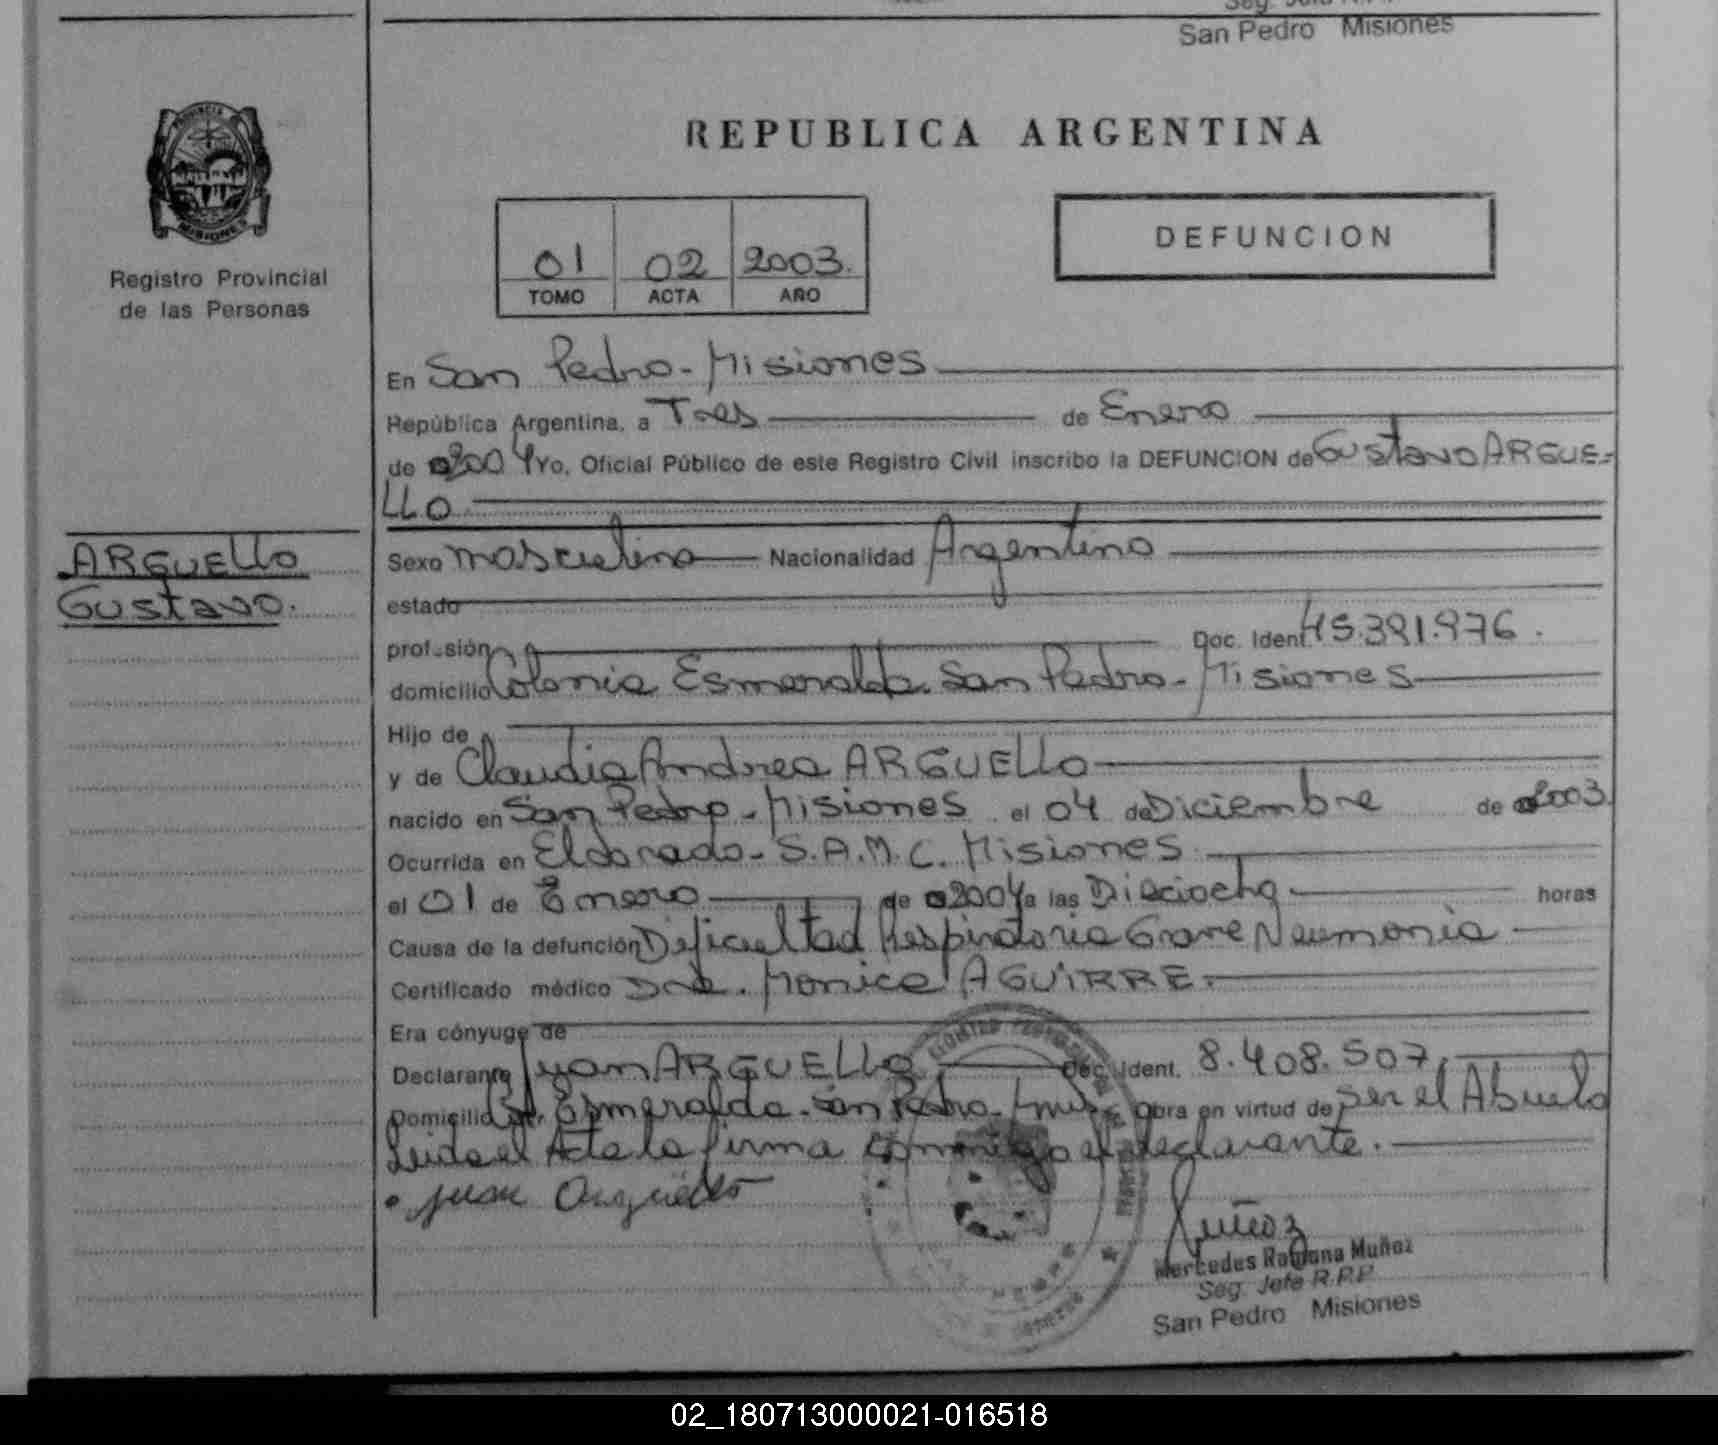 San Pedro Misiones
PROVINCIA
MISIONES
Registro Provincial
de las Personas
REPUBLICA ARGENTINA
01 02 2003.
TOMO ACTA AÑO
DEFUNCION
En San Pedro - Misiones
República Argentina, a Tres de Enero
de 2004 Yo, Oficial Público de este Registro Civil inscribo la DEFUNCION de Gustavo ARGUE-
LLO
ARGUELLO
Gustavo.
Sexo masculino Nacionalidad Argentino
estado
profesión Doc. Ident.
domicilio Colonia Esmeralda. San Pedro - Misiones
Hijo de
y de Claudia Andrea ARGUELLO
nacido en San Pedro - Misiones el 04 de Diciembre de 2003.
Ocurrida en Eldorado - S.A.M.C. Misiones
el 01 de Enero de 2004 a las Dieciocho horas
Causa de la defunción Dificultad Respiratoria Grave Neumonia
Certificado médico Dra. Monica AGUIRRE.
Era cónyuge de
Declarante Juan ARGUELLO Doc. Ident. 8.408.507,
Domicilio Esmeralda - San Pedro - obra en virtud de ser el Abuelo
Leida el Acta la firma conmigo el declarante.
Juan Arguello
Muñoz
Mercedes Ramona Muñoz
Seg. Jefe R.P.P.
San Pedro Misiones
02_180713000021-016518